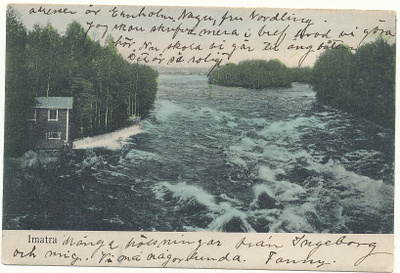 adressen är Enholm, Nagu, fru Nordling.
Jag skan skrifva mera i bref hvad vi göra
här. Nu skola vi gå till ångbåten
Det är så roligt
Imatra
Många hälsningar från Ingeborg
och mig. Vi må någorlunda. Fanny.